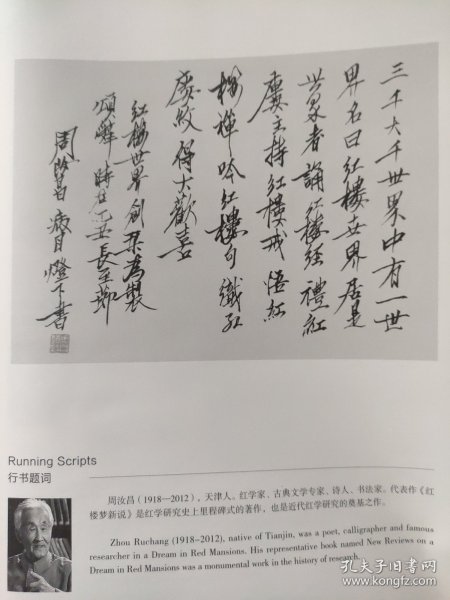 三千大千世界中有一世
界名曰红樓世界居是
世界者誦红楼经禮红
廔主持红樓戒悟红
楼禅吟红樓句红
廔得大歡喜
红楼世界創刊為製
頌辭時在乙丑長至節
周汝昌燈下書
Running Scripts
行书题词
周汝昌（1918—2012），天津人。红学家、古典文学专家、诗人、书法家。代表作《红
楼梦新说》是红学研究史上里程碑式的著作，也是近代红学研究的奠基之作。
Zhou Ruchang (1918–2012), native of Tianjin, was a poet, calligrapher and famous
researcher in a Dream in Red Mansions. His representative book named New Reviews on a
Dream in Red Mansions was a monumental work in the history of research.
孔夫子旧书网
www.kongfz.com